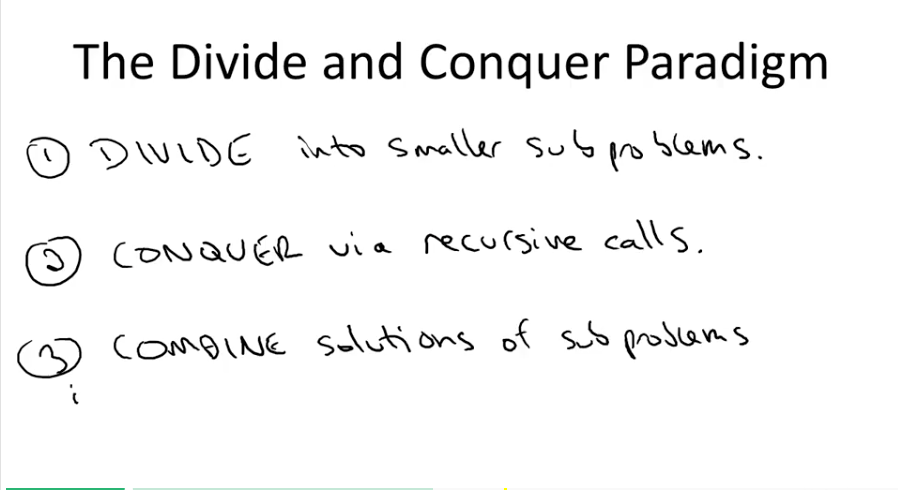 The Divide and Conquer Paradigm
① DIVIDE into smaller subproblems.
② CONQUER via recursive calls.
③ COMBINE solutions of subproblems
i